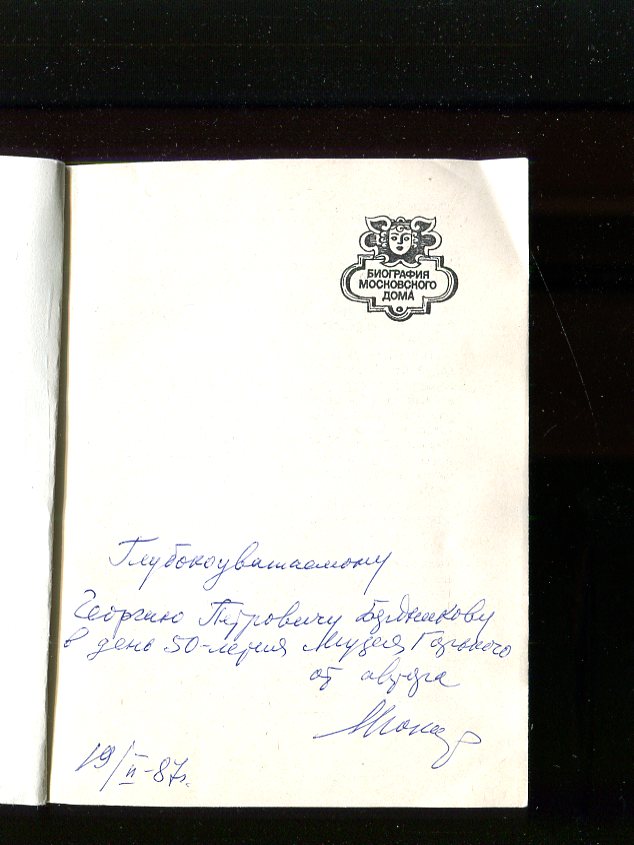 БИОГРАФИЯ
МОСКОВСКОГО
ДОМА
Глубокоуважаемому
Георгию Петровичу
в день 50-летия Музея Горького
от автора
19/II-87г.